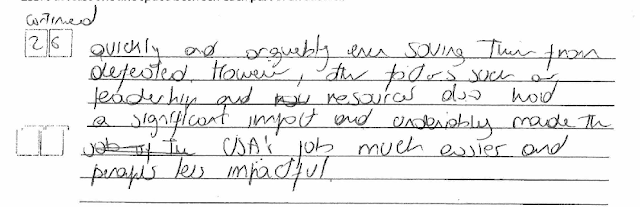 continued
26 quickly and arguably even saving them from
defeated. However, other factors such as
leadership and resources also hold
a significant impact and undeniably made the
job of the USA's job much easier and
perhaps less impactful.